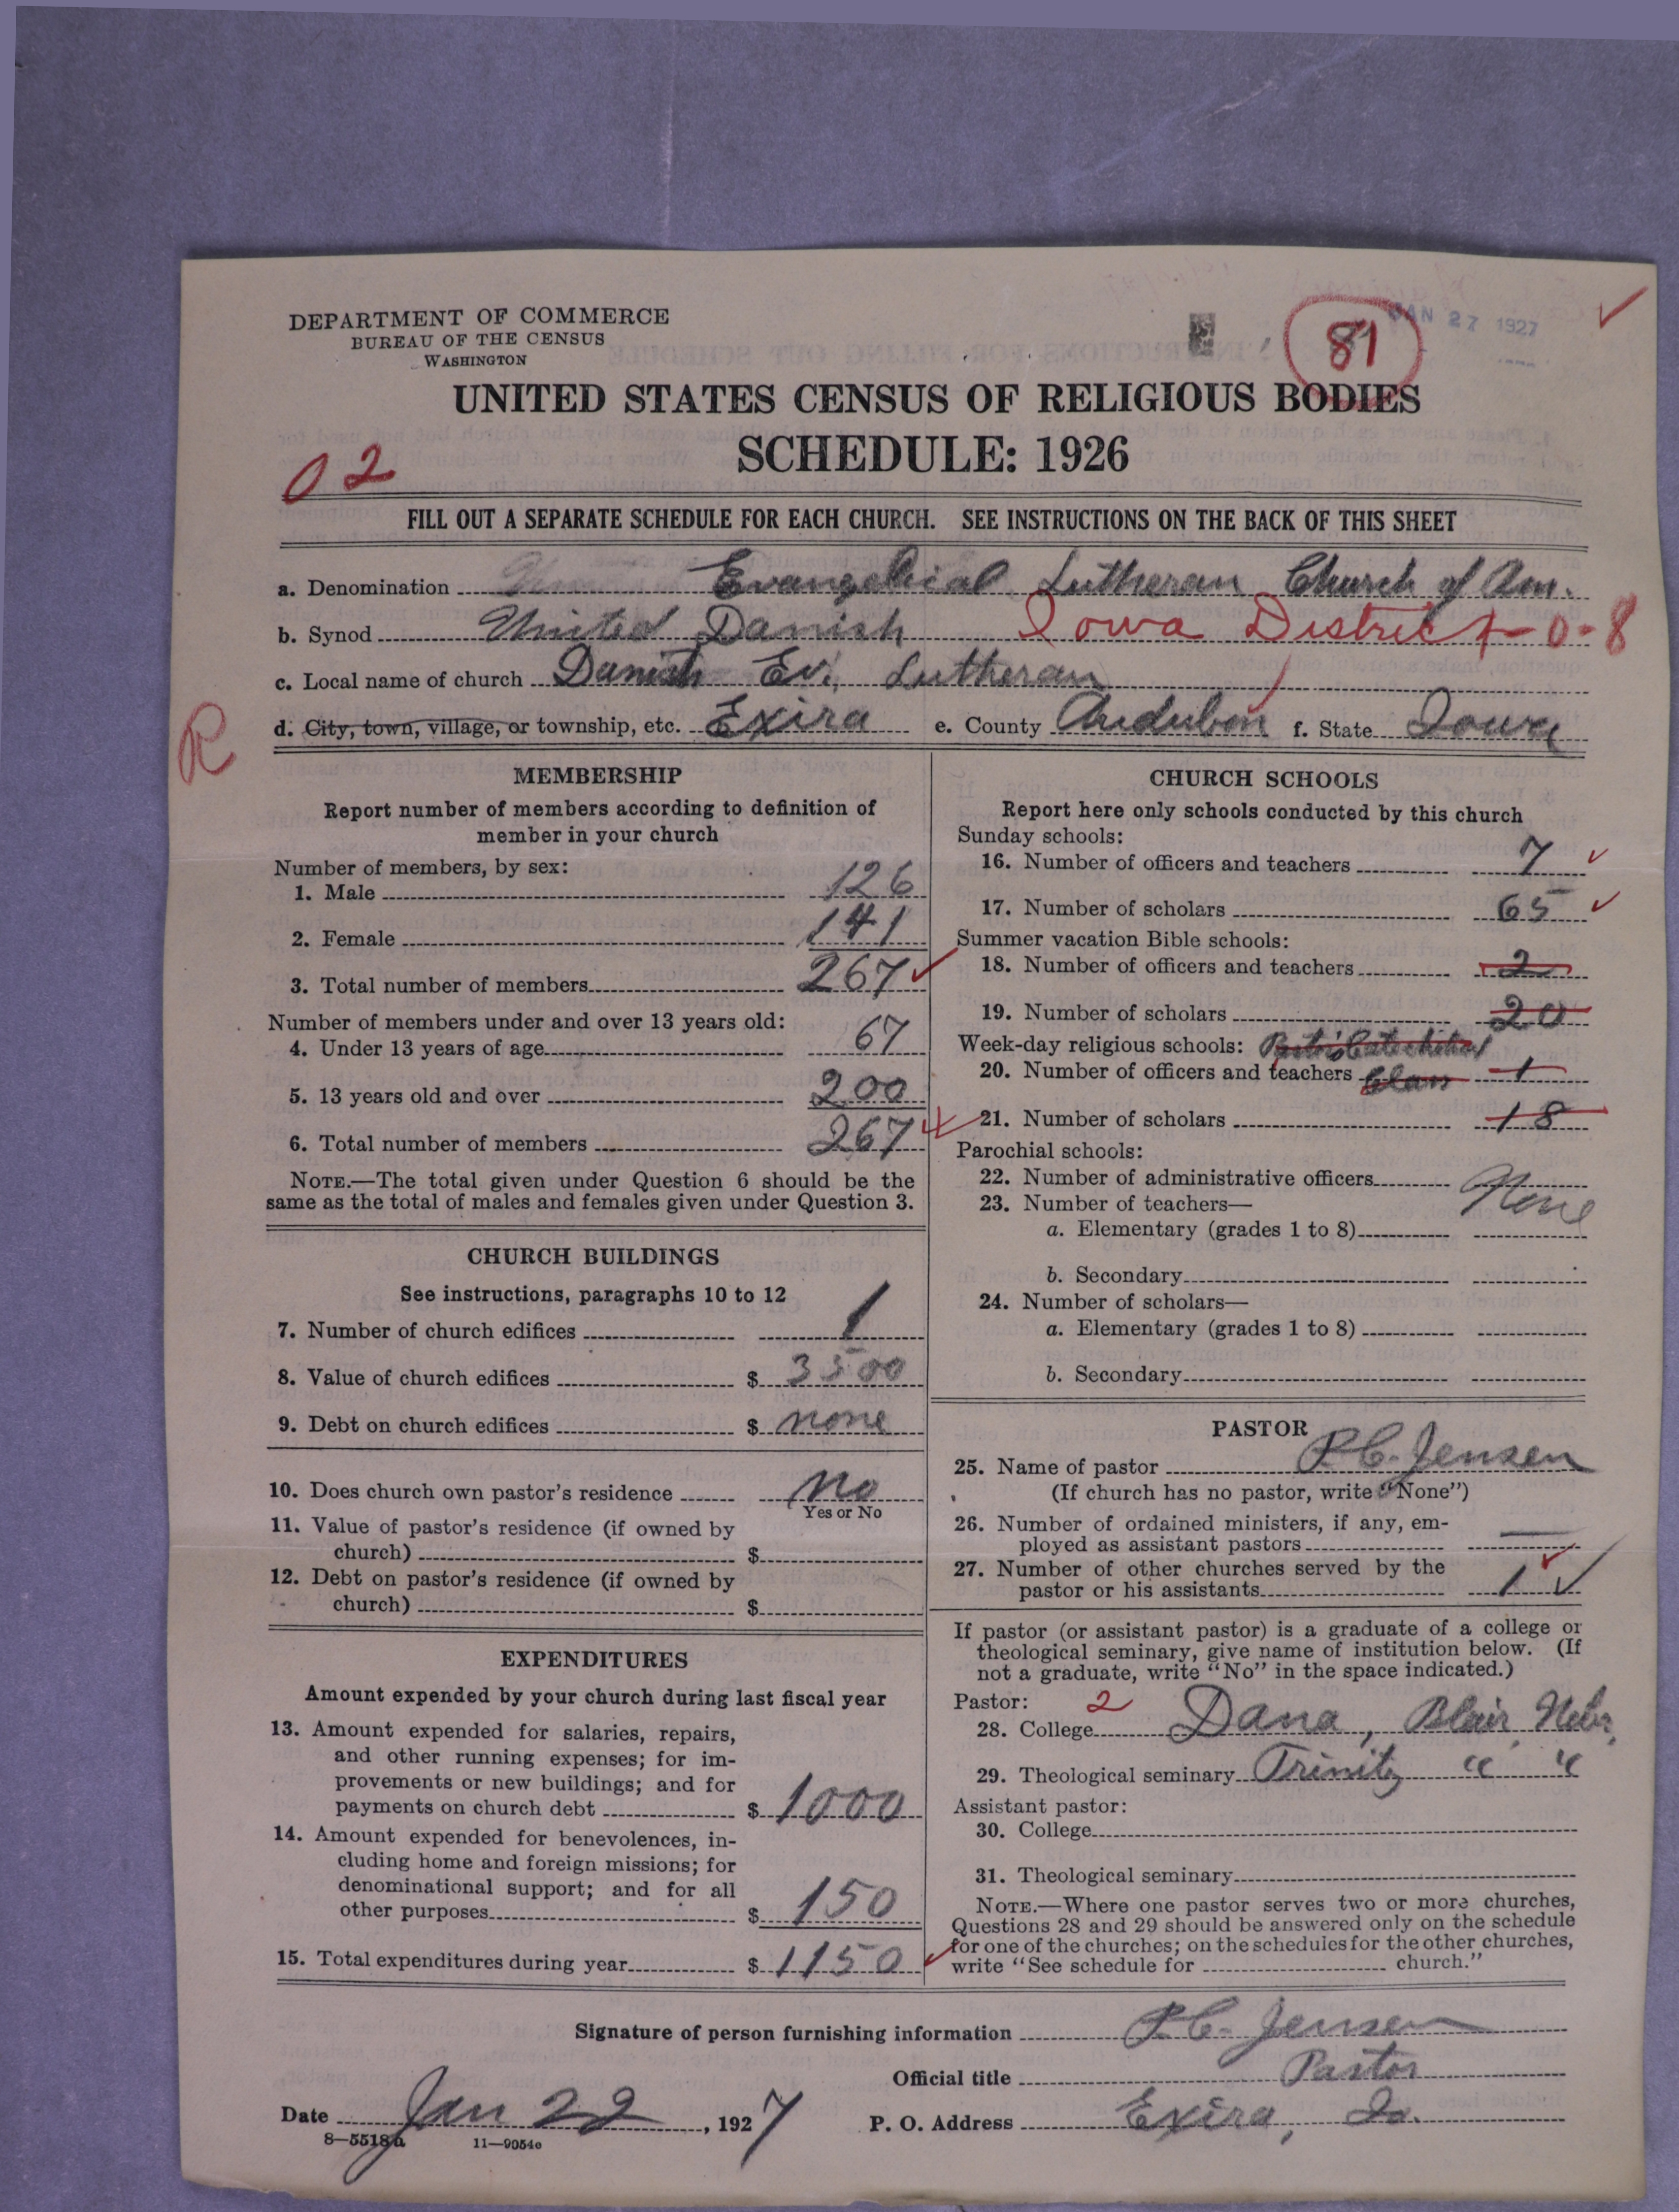 DEPARTMENT OF COMMERCE
BUREAU OF THE CENSUS
WASHINGTON
81
JAN 27 1927
UNITED STATES CENSUS OF RELIGIOUS BODIES
SCHEDULE: 1926
02
FILL OUT A SEPARATE SCHEDULE FOR EACH CHURCH. SEE INSTRUCTIONS ON THE BACK OF THIS SHEET
a. Denomination Evangelical Lutheran Church of Am.
b. Synod United Danish Iowa District - 0-8
c. Local name of church Danish Ev. Lutheran
R
d. City, town, village, or township, etc. Exira e. County Audubon f. State Iowa
MEMBERSHIP
Report number of members according to definition of
member in your church
Number of members, by sex:
1. Male 126
2. Female 141
3. Total number of members 267
Number of members under and over 13 years old:
4. Under 13 years of age 67
5. 13 years old and over 200
6. Total number of members 267
NOTE.—The total given under Question 6 should be the
same as the total of males and females given under Question 3.
CHURCH BUILDINGS
See instructions, paragraphs 10 to 12
7. Number of church edifices 1
8. Value of church edifices $ 3500
9. Debt on church edifices $ none
10. Does church own pastor's residence No
Yes or No
11. Value of pastor's residence (if owned by
church) $
12. Debt on pastor's residence (if owned by
church) $
EXPENDITURES
Amount expended by your church during last fiscal year
13. Amount expended for salaries, repairs,
and other running expenses; for im-
provements or new buildings; and for
payments on church debt $ 1000
14. Amount expended for benevolences, in-
cluding home and foreign missions; for
denominational support; and for all
other purposes $ 150
15. Total expenditures during year $ 1150
CHURCH SCHOOLS
Report here only schools conducted by this church
Sunday schools:
16. Number of officers and teachers 7
17. Number of scholars 65
Summer vacation Bible schools:
18. Number of officers and teachers 2
19. Number of scholars 20
Week-day religious schools:
20. Number of officers and teachers Class 1
21. Number of scholars 18
Parochial schools:
22. Number of administrative officers None
23. Number of teachers—
a. Elementary (grades 1 to 8)
b. Secondary
24. Number of scholars—
a. Elementary (grades 1 to 8)
b. Secondary
PASTOR
25. Name of pastor P.C. Jensen
(If church has no pastor, write "None")
26. Number of ordained ministers, if any, em-
ployed as assistant pastors —
27. Number of other churches served by the
pastor or his assistants 1
If pastor (or assistant pastor) is a graduate of a college or
theological seminary, give name of institution below. (If
not a graduate, write "No" in the space indicated.)
Pastor: 2
28. College Dana, Blair, Nebr.
29. Theological seminary Trinity " "
Assistant pastor:
30. College
31. Theological seminary
NOTE.—Where one pastor serves two or more churches,
Questions 28 and 29 should be answered only on the schedule
for one of the churches; on the schedules for the other churches,
write "See schedule for church."
Signature of person furnishing information P.C. Jensen
Official title Pastor
Date Jan 22, 1927 P. O. Address Exira, Ia.
8—5518a 11—9054c